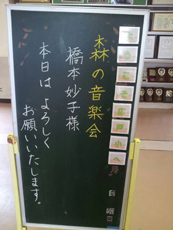 森の音楽会
橋本妙子様
本日はよろしく
お願いいたします。